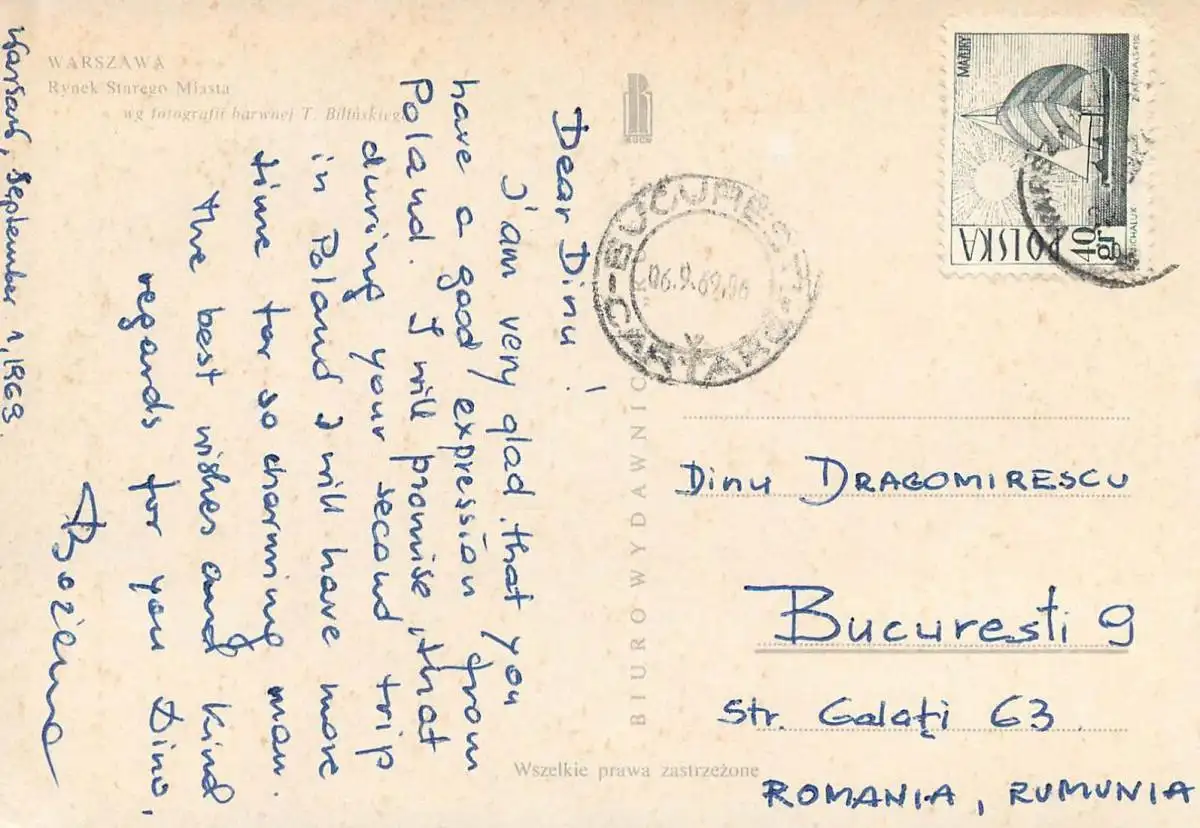 WARSZAWA
Rynek Starego Miasta
wg fotografii barwnej T. Bilińskiego
Warsaw, September 1, 1969.
Dear Dinu!
I'am very glad that you
have a good expression from
Poland. I will promise, that
during your second trip
in Poland I will have more
time for so charming man.
The best wishes and kind
regards for you Dino.
Bożena
RUCH
BIURO WYDAWNIC
BUCUREȘTI
06.9.69
CARTARE
MAZURY
POLSKA
40 gr
WARSZ
Dinu DRAGOMIRESCU
Bucuresti 9
Str. Galaţi 63
ROMANIA, RUMUNIA
Wszelkie prawa zastrzeżone